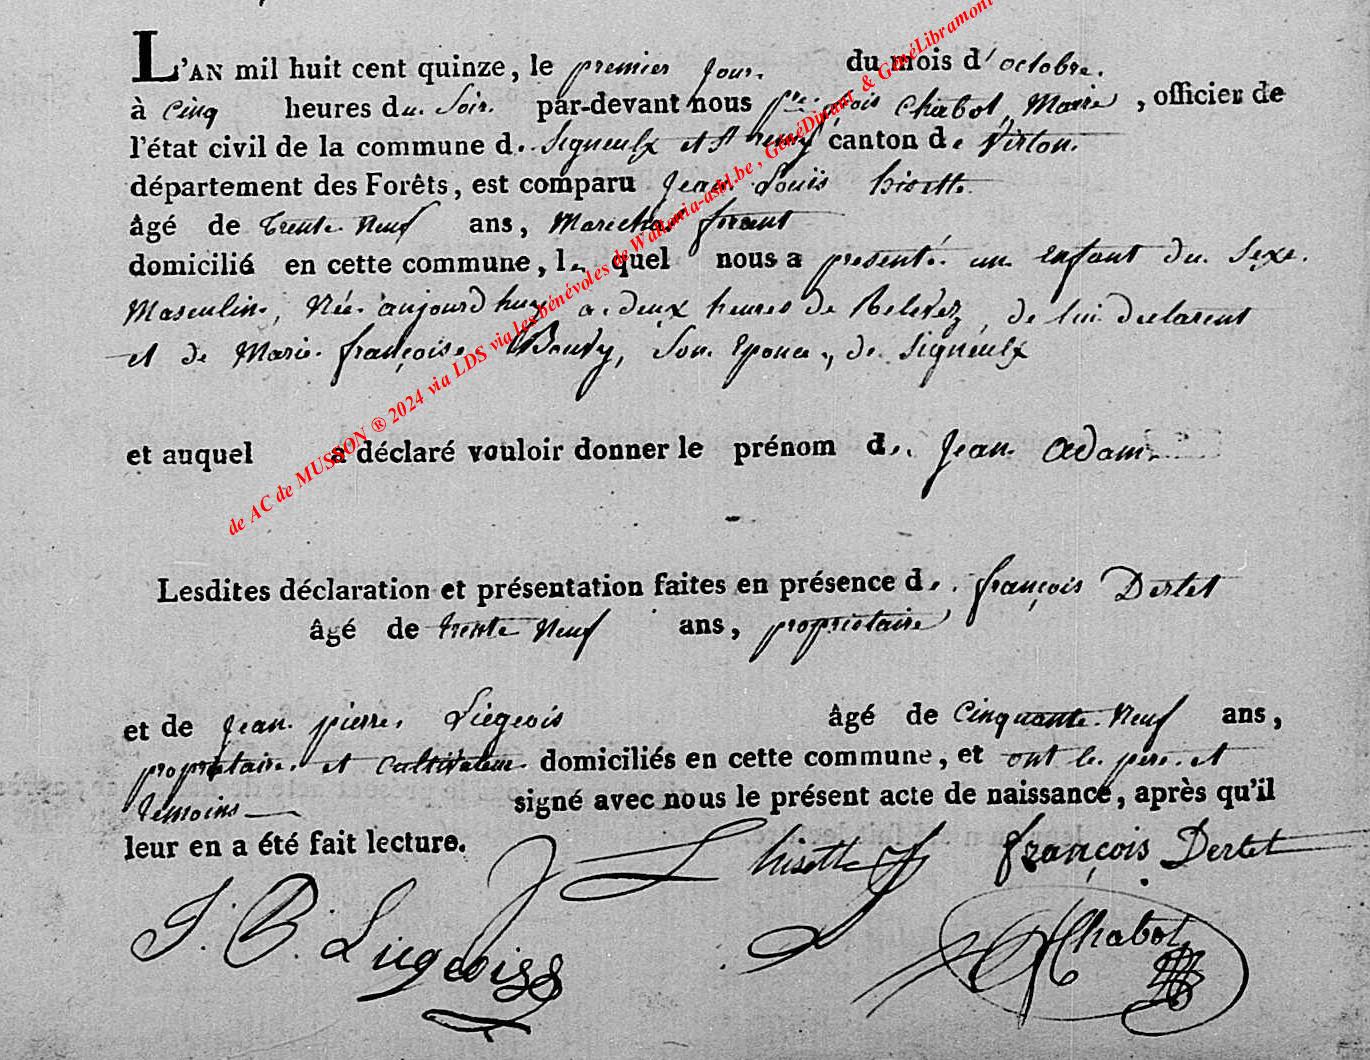 L'AN mil huit cent quinze, le premier jour du mois d'octobre.
à Cinq heures du Soir. par-devant nous Chabot, Maire, officier de
l'état civil de la commune de Signeulx et St canton de Virton.
département des Forêts, est comparu Jean Louis hisette
âgé de trente Neuf ans, Marechal
domicilié en cette commune, le quel nous a presenté un enfant du Sexe.
Masculin, Née aujourd'huy a deux heures de Relevez, de lui declarent
et de Marie françoise Boudy, Son Epouce, de Signeulx
et auquel a déclaré vouloir donner le prénom de Jean Adam.
Lesdites déclaration et présentation faites en présence de françois Dertet
âgé de trente Neuf ans, propriétaire
et de Jean pierre Liégeois âgé de Cinquante Neuf ans,
propriétaire et Cultivateur domiciliés en cette commune, et ont le pere et
temoins signé avec nous le présent acte de naissance, après qu'il
leur en a été fait lecture.
L hisette
françois Dertet
J. B. Liegeois
Chabot
de AC de MUSSON ® 2024 via LDS via les bénévoles de Wallonia-asbl.be , GénéDinant & GénéLibramont